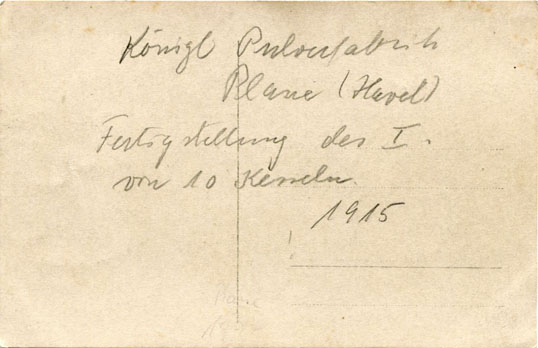 Königl Pulverfabrik
Plaue (Havel)
Fertigstellung des I.
von 10 Kesseln.
1915